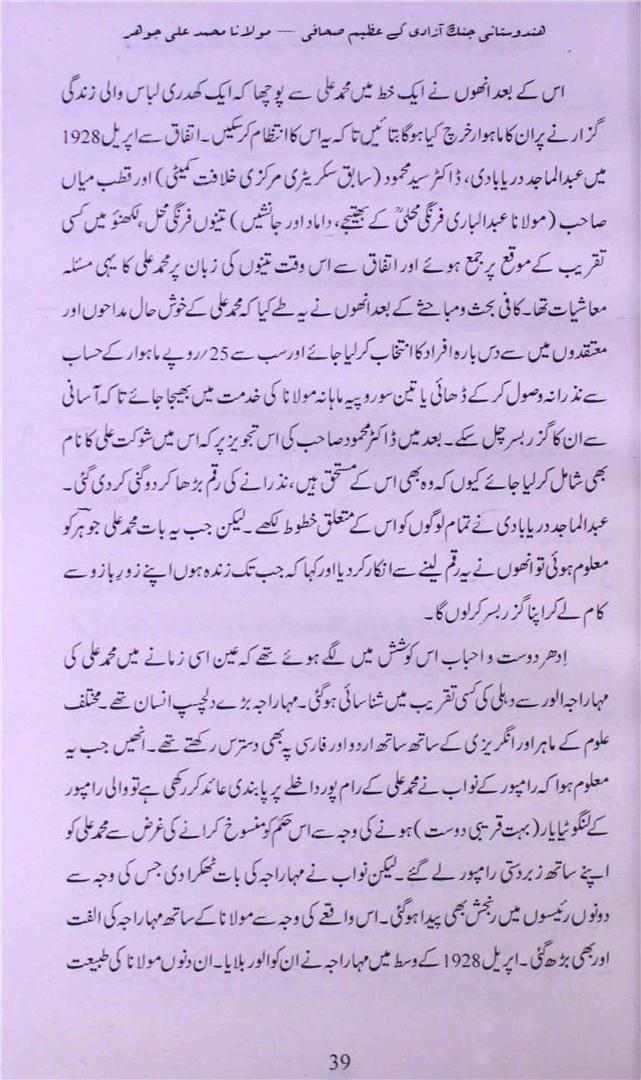 ہندوستانی جنگ آزادی کے عظیم صحافی — مولانا محمد علی جوہر
اس کے بعد انھوں نے ایک خط میں محمد علی سے پوچھا کہ ایک کھدری لباس والی زندگی
گزارنے پر ان کا ماہوار خرچ کیا ہوگا بتائیں تاکہ یہ اس کا انتظام کرسکیں۔ اتفاق سے اپریل 1928
میں عبدالماجد دریابادی، ڈاکٹر سید محمود (سابق سکریٹری مرکزی خلافت کمیٹی) اور قطب میاں
صاحب (مولانا عبدالباری فرنگی محلیؒ کے بھتیجے، داماد اور جانشیں) تینوں فرنگی محل، لکھنؤ میں کسی
تقریب کے موقع پر جمع ہوئے اور اتفاق سے اس وقت تینوں کی زبان پر محمد علی کا یہی مسئلہ
معاشیات تھا۔ کافی بحث و مباحثے کے بعد انھوں نے یہ طے کیا کہ محمد علی کے خوش حال مداحوں اور
معتقدوں میں سے دس بارہ افراد کا انتخاب کرلیا جائے اور سب سے 25/روپے ماہوار کے حساب
سے نذرانہ وصول کرکے ڈھائی یا تین سو روپیہ ماہانہ مولانا کی خدمت میں بھیجا جائے تاکہ آسانی
سے ان کا گزر بسر چل سکے۔ بعد میں ڈاکٹر محمود صاحب کی اس تجویز پر کہ اس میں شوکت علی کا نام
بھی شامل کرلیا جائے کیوں کہ وہ بھی اس کے مستحق ہیں، نذرانے کی رقم بڑھا کر دوگنی کردی گئی۔
عبدالماجد دریابادی نے تمام لوگوں کو اس کے متعلق خطوط لکھے۔ لیکن جب یہ بات محمد علی جوہرؔ کو
معلوم ہوئی تو انھوں نے یہ رقم لینے سے انکار کردیا اور کہا کہ جب تک زندہ ہوں اپنے زورِ بازو سے
کام لے کر اپنا گزر بسر کرلوں گا۔
اِدھر دوست و احباب اس کوشش میں لگے ہوئے تھے کہ عین اسی زمانے میں محمد علی کی
مہاراجہ الور سے دہلی کی کسی تقریب میں شناسائی ہوگئی۔ مہاراجہ بڑے دلچسپ انسان تھے۔ مختلف
علوم کے ماہر اور انگریزی کے ساتھ ساتھ اردو اور فارسی پہ بھی دسترس رکھتے تھے۔ انھیں جب یہ
معلوم ہوا کہ رامپور کے نواب نے محمد علی کے رام پور داخلے پر پابندی عائد کر رکھی ہے تو والی رامپور
کے لنگوٹیا یار (بہت قریبی دوست) ہونے کی وجہ سے اس حکم کو منسوخ کرانے کی غرض سے محمد علی کو
اپنے ساتھ زبردستی رامپور لے گئے۔ لیکن نواب نے مہاراجہ کی بات ٹھکرا دی جس کی وجہ سے
دونوں رئیسوں میں رنجش بھی پیدا ہوگئی۔ اس واقعے کی وجہ سے مولانا کے ساتھ مہاراجہ کی الفت
اور بھی بڑھ گئی۔ اپریل 1928 کے وسط میں مہاراجہ نے ان کو الور بلایا۔ ان دنوں مولانا کی طبیعت
39